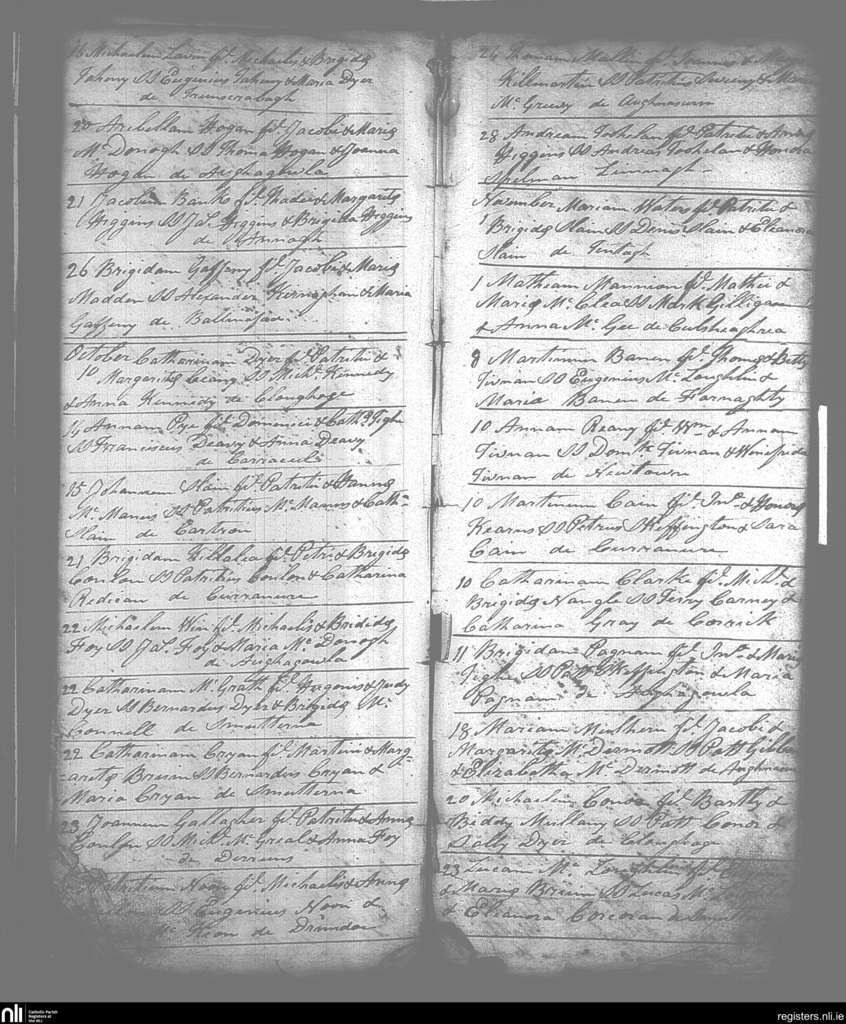 16 Michaelem Lavin fil. Michaelis & Brigidæ
Taheny SS Eugenius Taheny & Maria Dyer
de
20 Arebellam Hogan fil. Jacobi & Mariæ
Mc Donogh SS Thoma Hogan & Joanna
Hogan de Aughagowla
21 Jacobum Banks fil. Thadei & Margaritæ
Higgins SS Jas. Higgins & Brigida Higgins
de Annagh
26 Brigidam Gaffeny fil. Jacobi & Mariæ
Madden SS Alexander Kernaghan & Maria
Gaffeny de
October Catharinam Dyer fil. Patritii &
10 Margaritæ SS Michl. Kennedy
& Anna Kennedy de Cloughoge
14 Annam Pye fil. Dominici & Cath. Tighe
SS Franciscus Deavy & Anna Deavy
de
15 Johannem Slain fil. Patritii &
Mc Manus SS Patritius Mc Manus & Cath
Slain de Cartron
21 Brigidam Killalea fil. Petri & Brigidæ
Conlon SS Patritius Conlon & Catharina
Redican de Curraneure
22 Michaelem Win fil. Michaelis & Brididæ
Foy SS Jas. Foy & Maria Mc Donogh
de Aughagowla
22 Catharinam Mc Grath fil. Hugonis & Judy
Dyer SS Bernardus Dyer & Brigida Mc
Connell de Smutterna
22 Catharinam Cryan fil. Martini & Marg
aritæ Bruin SS Bernardus Cryan &
Maria Cryan de Smutterna
23 Joannem Gallagher fil. Patritii & Annæ
Conlon SS Michl. Mc Greal & Anna Foy
de Derreens
Patritium Noon fil. Michaelis & Annæ
SS Eugenius Noon &
Keon de Drimdoe
24 Thomam Mullin fil. Joannis &
Killmartin SS Patritius Sweeny &
Mc Greevy de
28 Andream Foshelan fil. Patritii & Annæ
Higgins SS Andreas Foshelan & Honora
Spelman
November Mariam Waters fil. Patritii &
1 Brigidæ Slain SS Denis Slain & Eleanora
Slain de
1 Mathiam Mannion fil. Mathei &
Mariæ Mc Clea SS Mark Gilligan
& Anna Mc Gee de Culsheaghrea
8 Martinum Banen fil. Thomæ & Betty
Tivnan SS Eugenius Mc Loughlin &
Maria Banen de Farnaghty
10 Annam Reany fil. Wm. & Annam
Tivnan SS Domk. Tivnan & Winefrida
Tivnan de Newtown
10 Martinum Cain fil. Jno. & Honoræ
Kearns SS Petrus Skeffington & Sara
Cain de Curraneure
10 Catharinam Clarke fil. Michl. &
Brigidæ Nangle SS Terry Carney &
Catharina Gray de Corrick
11 Brigidam Pagnam fil. Jno. & Mariæ
Tighe SS Patt Skeffington & Maria
Pagnam de Aughagowla
18 Mariam Mulhern fil. Jacobi &
Margaritæ Mc Dermott SS Patt
& Elizabetha Mc Dermott de
20 Michaelem Conor fil. Bartly &
Biddy Mullany SS Patt Conor &
Sally Dyer de Cloughoge
23 Lucam Mc Loughlin fil.
& Mariæ Bruin SS Lucas Mc
& Eleanora Corcoran de
nli
Catholic Parish
Registers at
the NLI
registers.nli.ie